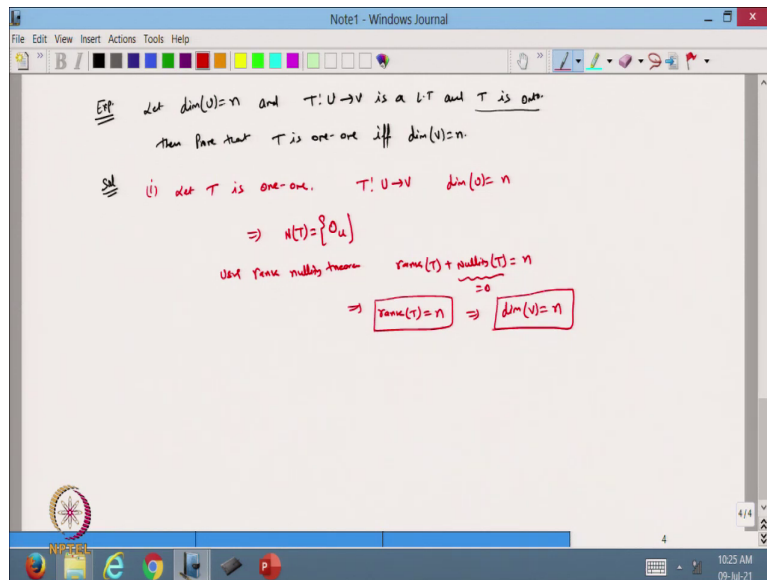 Note1 - Windows Journal
File Edit View Insert Actions Tools Help
Exp. Let dim(U)=n and T: U→V is a L.T and T is onto.
then Prove that T is one-one iff dim(V)=n.
Sol (i) Let T is one-one. T: U→V dim(U)=n
⇒ N(T)={0u}
Use rank nullity theorem rank(T) + nullity(T) = n
=0
⇒ rank(T)=n ⇒ dim(V)=n
4/4
4
NPTEL
10:25 AM
09-Jul-21